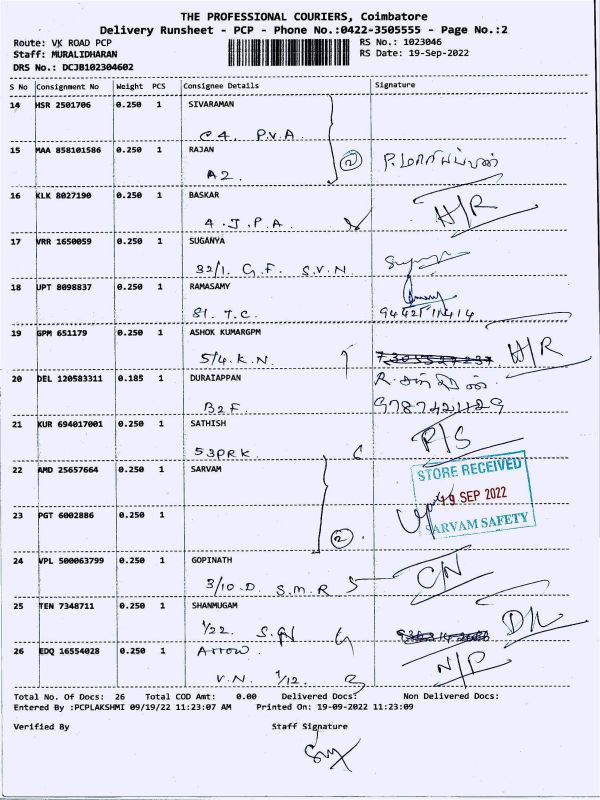 THE PROFESSIONAL COURIERS, Coimbatore
Delivery Runsheet - PCP - Phone No.:0422-3505555 - Page No.:2
Route: VK ROAD PCP RS No.: 1023046
Staff: MURALIDHARAN RS Date: 19-Sep-2022
DRS No.: DCJB102304602
S No Consignment No Weight PCS Consignee Details Signature
14 HSR 2501706 0.250 1 SIVARAMAN
C4. P.V.A
15 MAA 858101586 0.250 1 RAJAN
A2. 2
16 KLK 8027190 0.250 1 BASKAR
4.J.P.A H/R
17 VRR 1650059 0.250 1 SUGANYA
32/1. G.F. S.V.N
18 UPT 8098837 0.250 1 RAMASAMY
81. T.C.
19 GPM 651179 0.250 1 ASHOK KUMARGPM
5/4.K.N. H/R
20 DEL 120583311 0.185 1 DURAIAPPAN
B2F. 9787421129
21 KUR 694017001 0.250 1 SATHISH
53PRK R/S
22 AMD 25657664 0.250 1 SARVAM
STORE RECEIVED
19 SEP 2022
SARVAM SAFETY
23 PGT 6002886 0.250 1
2
24 VPL 500063799 0.250 1 GOPINATH
3/10.D. S.M.R C/N
25 TEN 7348711 0.250 1 SHANMUGAM
1/22. D/L
26 EDQ 16554028 0.250 1 Arrow.
V.N. 1/12. N/P
Total No. Of Docs: 26 Total COD Amt: 0.00 Delivered Docs: Non Delivered Docs:
Entered By :PCPLAKSHMI 09/19/22 11:23:07 AM Printed On: 19-09-2022 11:23:09
Verified By Staff Signature